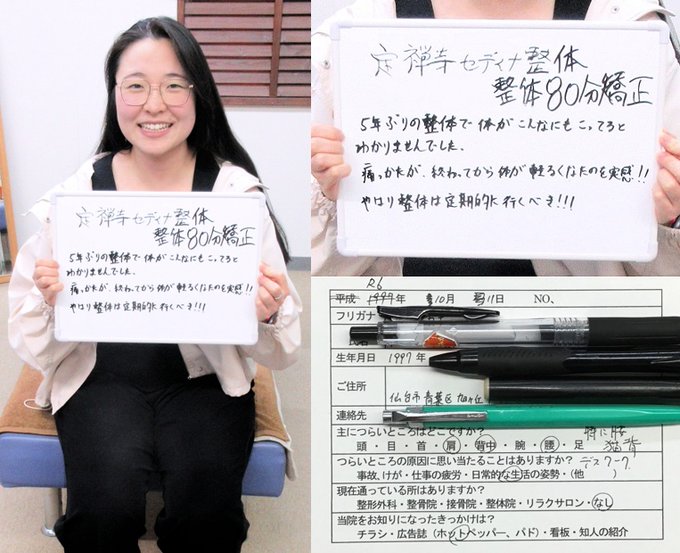 定禅寺セディナ整体
整体80分矯正
5年ぶりの整体で体がこんなにもこってると
わかりませんでした。
痛ったが、終わってから体が軽るくなたのを実感!!
やはり整体は定期的に行くべき!!!
定禅寺セディナ整体
整体80分矯正
5年ぶりの整体で体がこんなにもこってると
わかりませんでした。
痛ったが、終わってから体が軽るくなたのを実感!!
やはり整体は定期的に行くべき!!!
R6
平成 1997年 10月 11日 NO、
フリガナ
生年月日 1997年
ご住所 仙台市青葉区旭ヶ丘
連絡先
主につらいところはどこですか? 特に腰
頭・目・首・肩・背中・腕・腰・足 猫背
つらいところの原因に思い当たることはありますか? デスクワーク
事故、けが・仕事の疲労・日常的な生活の姿勢・(他 )
現在通っている所はありますか?
整形外科・整骨院・接骨院・整体院・リラクサロン・なし
当院をお知りになったきっかけは?
チラシ・広告誌(ホットペッパー、パド)・看板・知人の紹介